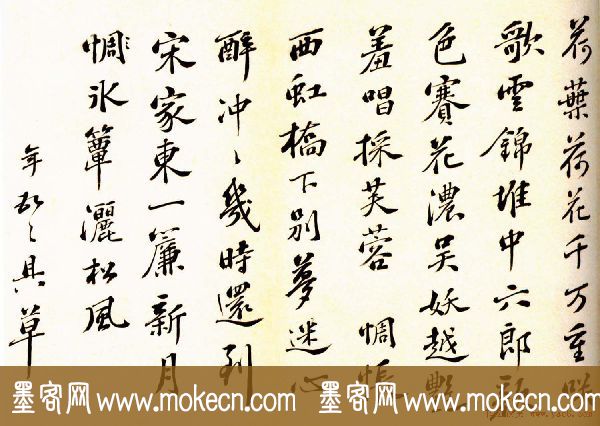 荷葉荷花千万重
歌雲錦堆中六郎
色賽花濃吴妖越艷
羞唱採芙蓉 惆悵
西虹橋下别夢迷心
醉冲々幾時還到
宋家東一簾新月
惆氷簟灑松風
年 具草
墨客网 www.mokecn.com 墨客网 www.mokecn.com